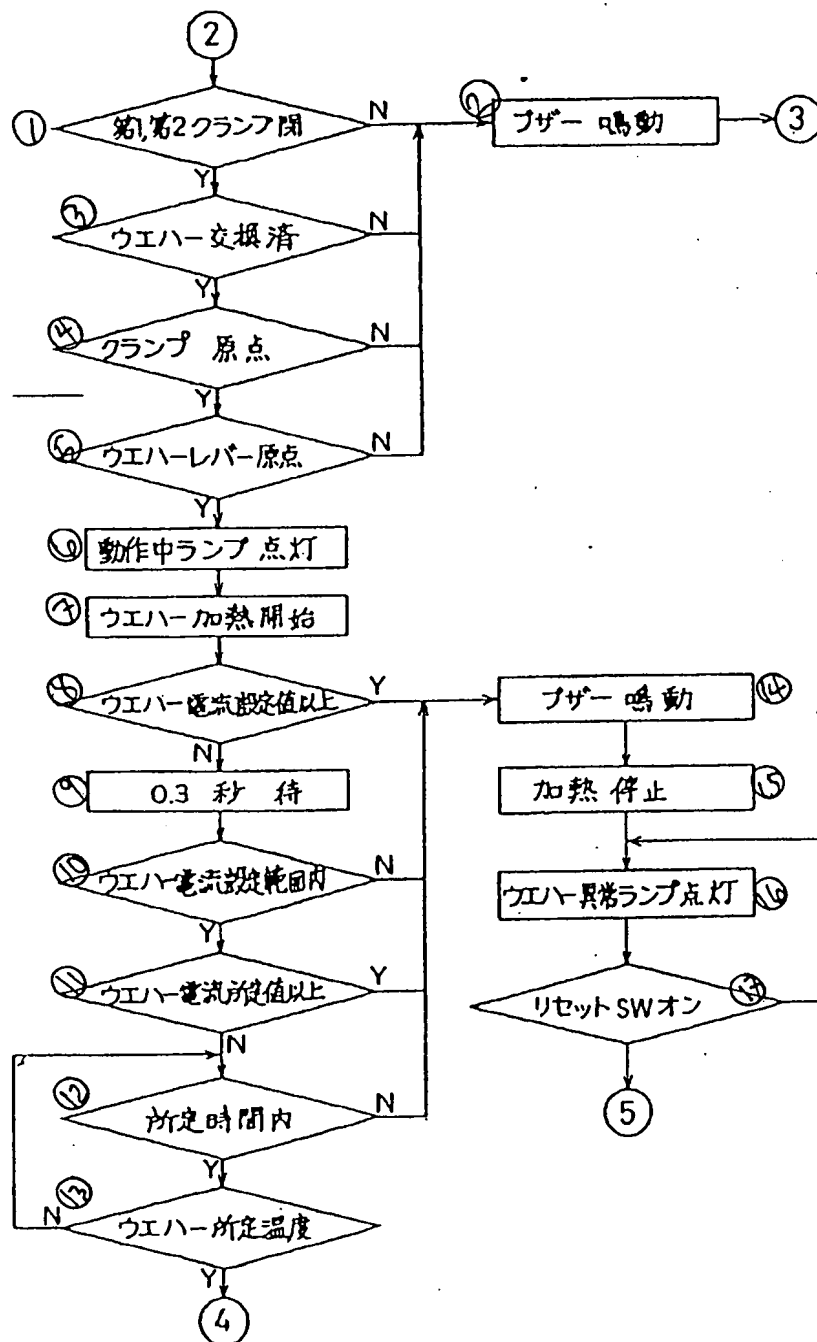 ②
① 第1,第2クランプ閉 N
② ブザー 鳴動
③
Y
③ ウエハー交換済 N
Y
④ クランプ 原点 N
Y
⑤ ウエハーレバー原点 N
Y
⑥ 動作中ランプ点灯
⑦ ウエハー加熱開始
⑧ ウエハー電流設定値以上 Y
N
⑨ 0.3 秒 待
⑩ ウエハー電流設定範囲内 N
Y
⑪ ウエハー電流所定値以上 Y
N
⑫ 所定時間内 N
Y
⑬ ウエハー所定温度
N
Y
④
ブザー 鳴動 ⑭
加熱停止 ⑮
ウエハー異常ランプ点灯 ⑯
リセットSWオン ⑰
⑤